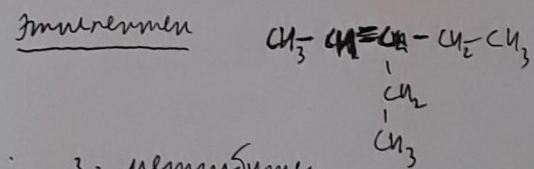 Этилпентен CH₃- CH=C - CH₂-CH₃
CH₂
CH₃
3.